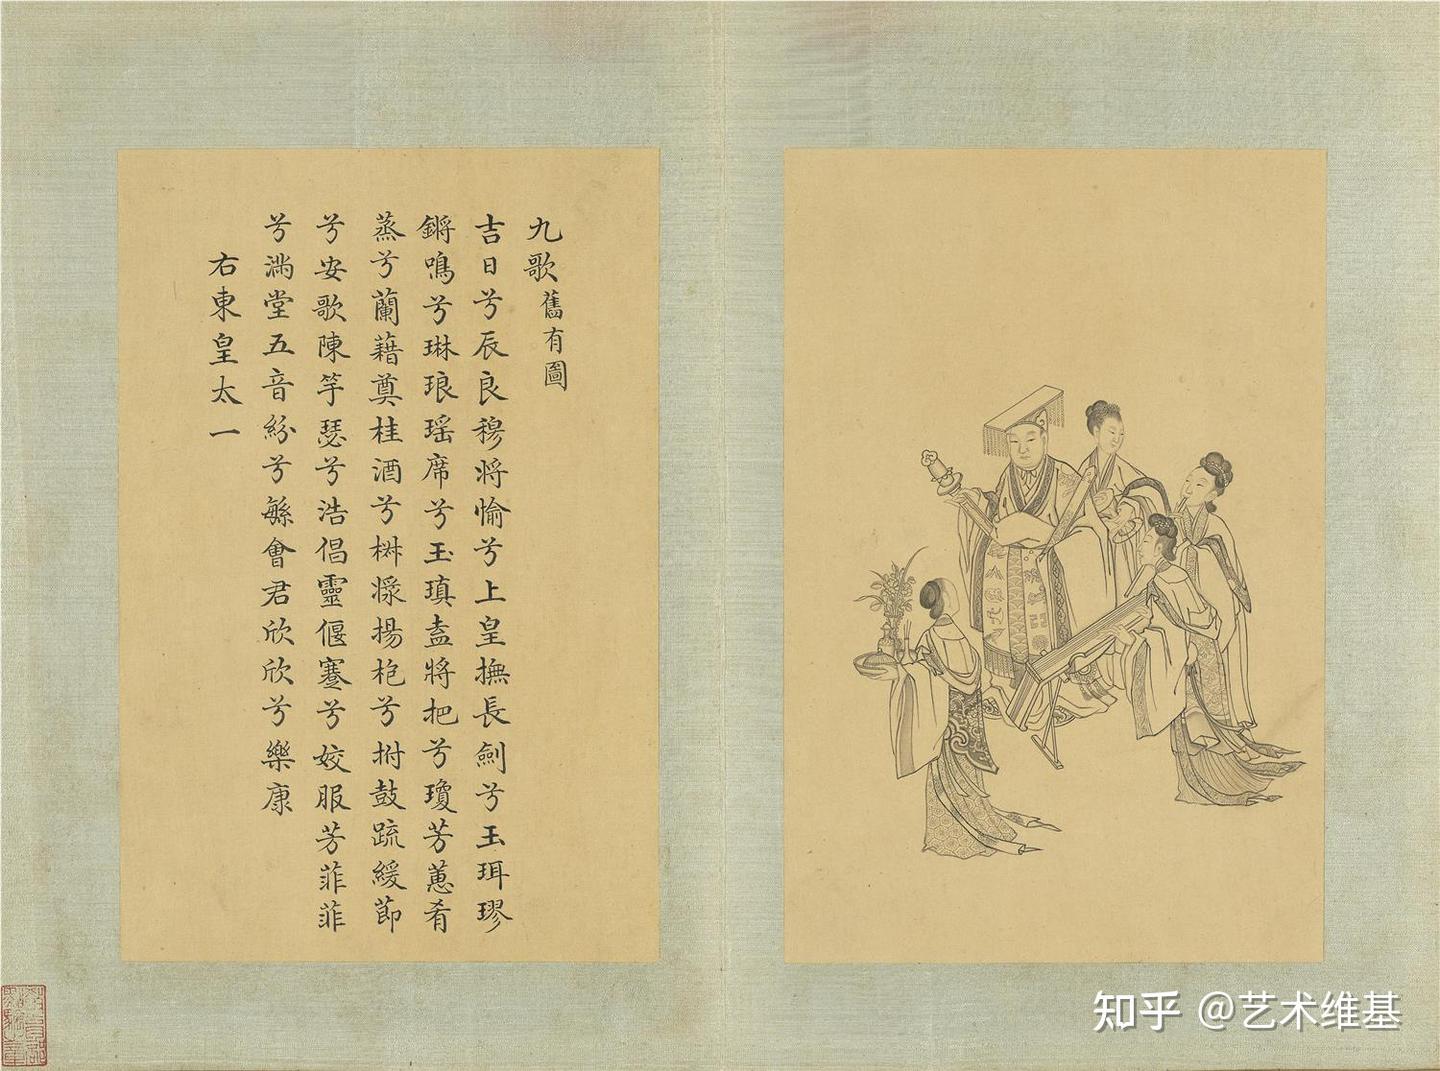 九歌舊有圖
吉日兮辰良穆將愉兮上皇撫長劍兮玉珥璆
鏘鳴兮琳琅瑤席兮玉瑱盍將把兮瓊芳蕙肴
蒸兮蘭藉奠桂酒兮椒漿揚枹兮拊鼓疏緩節
兮安歌陳竽瑟兮浩倡靈偃蹇兮姣服芳菲菲
兮滿堂五音紛兮繁會君欣欣兮樂康
右東皇太一
知乎 @艺术维基